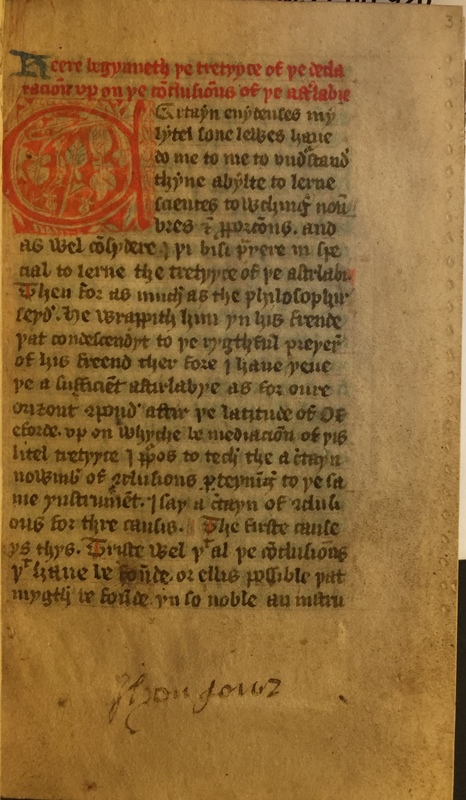 Heere begynneth þe tretyyce of þe decla
racioun vp on þe cōclusiouns of þe astrlabie
Certayn euydenses my
lytel sone lewes haue
do me to me to vndstand
thyne abylte to lerne
scienses towchinge nou
bres & pporcōns. and
as wel cōsydere I þi bisi pyere in spe
cial to lerne the tretyyce of þe astrlabi.
Then for as much as the phylosophir
seyd. he wrappith him yn his frende
þat condescendyt to þe rygthful preyer
of his freend ther fore I haue yeue
þe a sufficiēt astirlabye as for oure
orizont 9pound aftir þe latitude of Ox
eforde. vp on whyche be mediacōn of þis
litel tretyyce I ppos to tech the a ctayn
nowmb of 9clusions pteyning to þe sa
me ynstrumēt. I say a ctayn of 9clusi
ous for thre causis. The firste cause
ys thys. Triste wel yt al þe cōclusioūs
yt haue be foūde. or ellis possible þat
mygth be foūde. yn so noble an instru